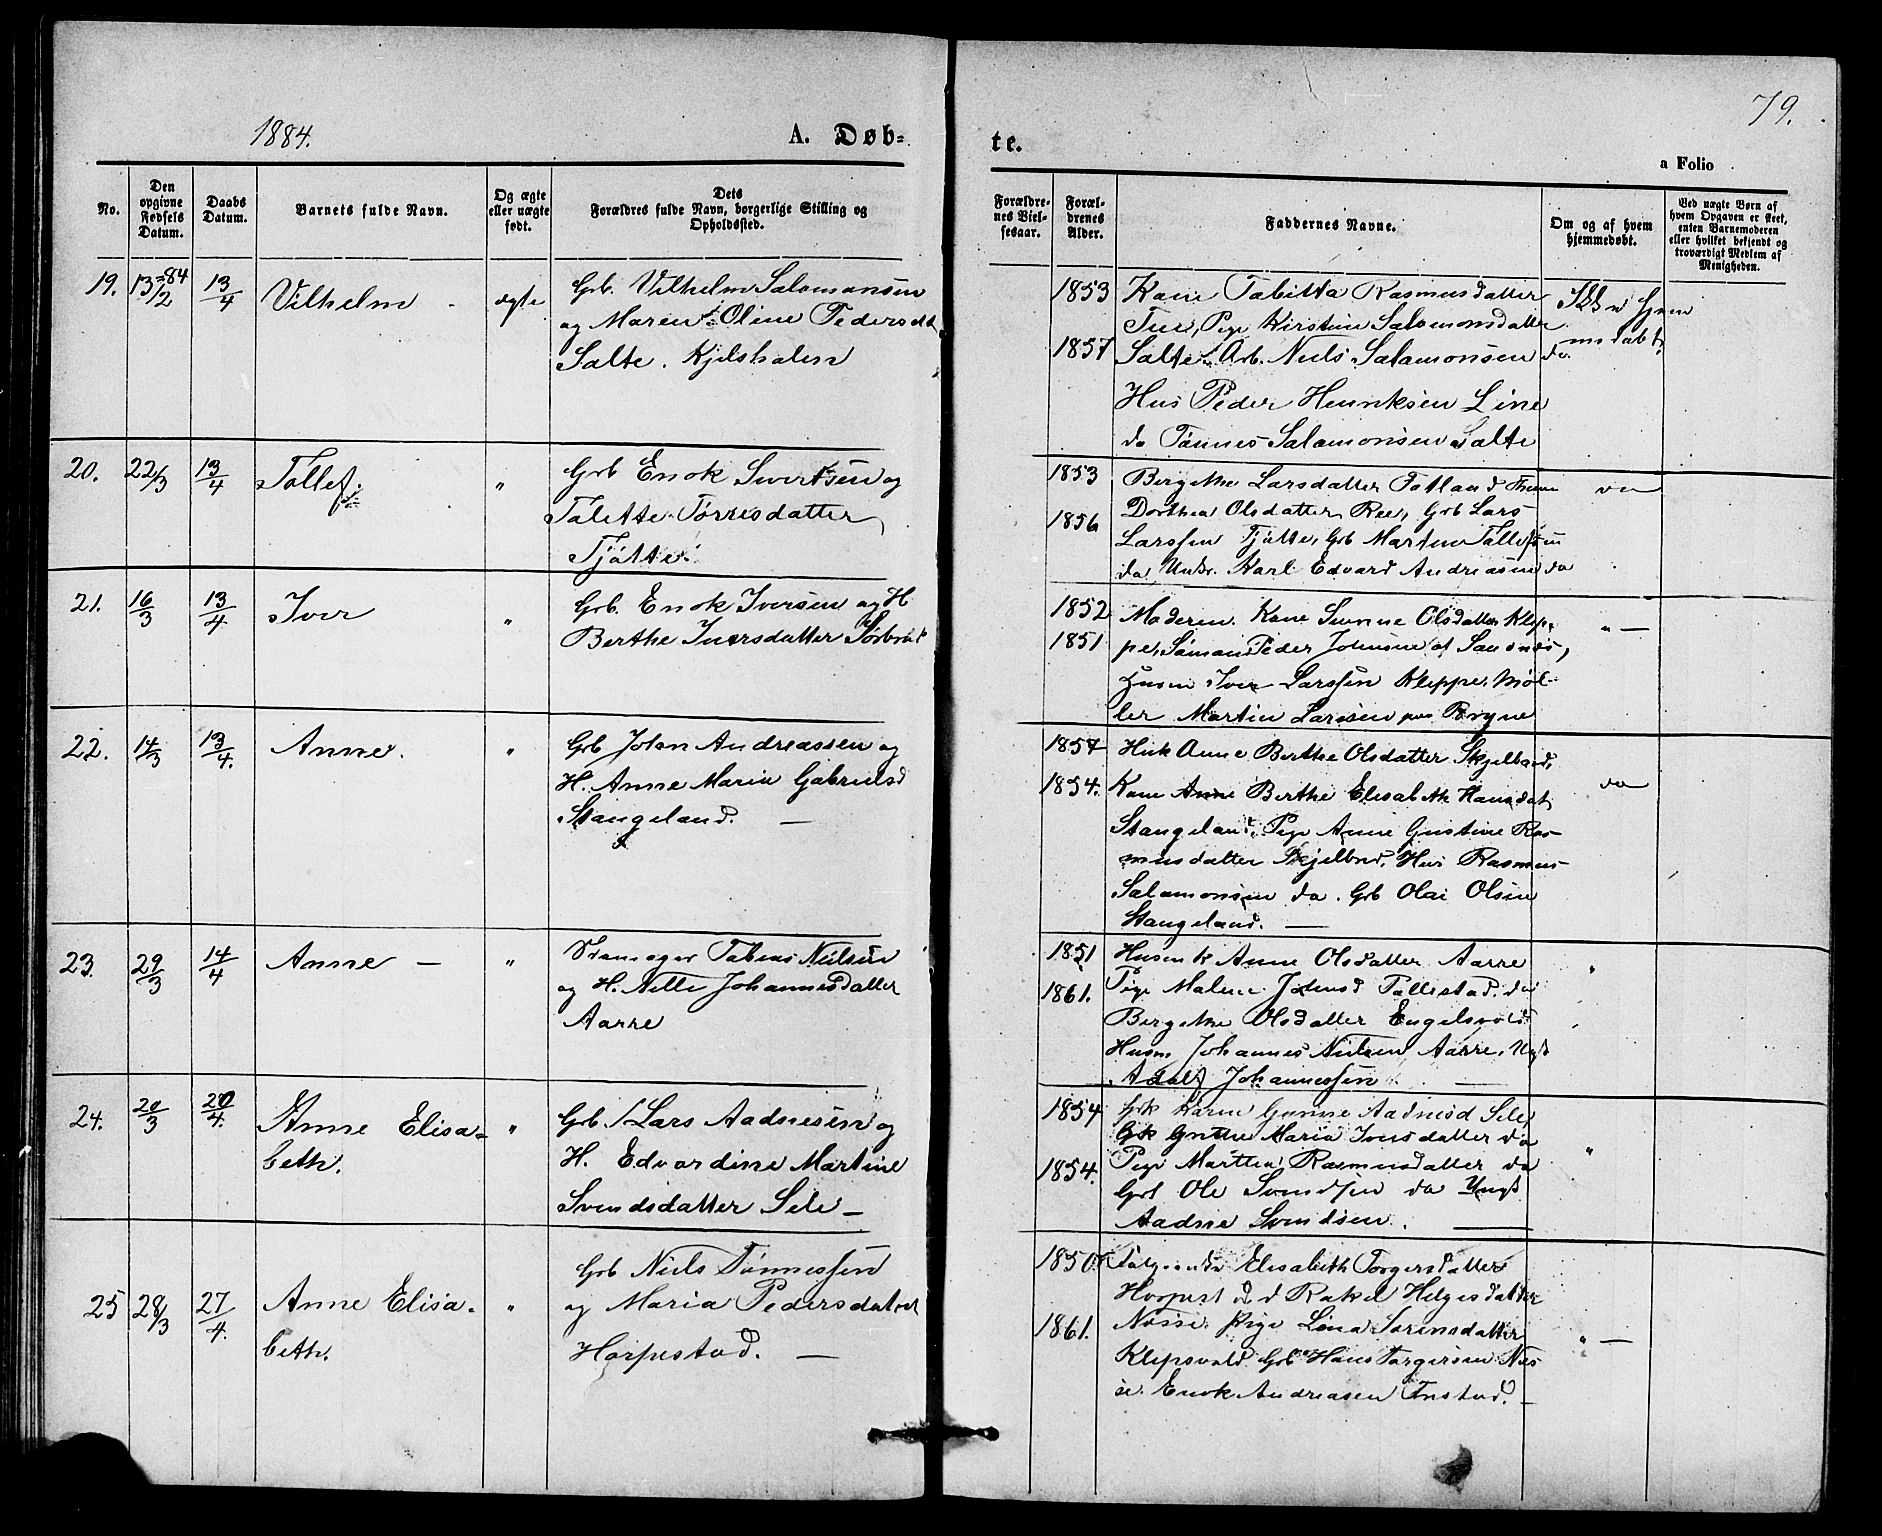 79.
1884.
A. Døb=
te.
a Folio
No.
Den opgivne Fødsels Datum.
Daabs Datum.
Barnets fulde Navn.
Og ægte eller uægte født.
Dets Forældres fulde Navn, borgerlige Stilling og Opholdssted.
Forældrenes Vielsesaar.
Forældrenes Alder.
Faddernes Navne.
Om og af hvem hjemmedøbt.
Ved uægte Børn af hvem Opgaven er skeet, enten Barnemoderen eller hvilket bekjendt og troværdigt Medlem af Menigheden.
19. 13/2 -84 13/4 Vilhelm - ægte
Grb. Vilhelm Salomonsen
og Maren Oline Pedersdt
Salte. Kjelshalen
1853
1857
Kone Tabitta Rasmusdatter
Tue, Pige Kirstine Salomonsdatter
Salte, Arb. Niels Salamonsen do.
Hus Peder Henriksen Line
do Tønnes Salamonsen Salte
20. 22/3 13/4 Tollef. "
Grb Enok Sivertsen og
Talette Tørresdatter
Tjøtte.
1853
1856
Bergethe Larsdatter Fotland
Dorthea Olsdatter Ree, Grb Lars
Larssen Tjøtte, Grb Martin Tollefsen
do Unkr. Karl Edvard Andreasen do
21. 16/3 13/4 Iver "
Grb. Enok Iversen og H.
Berthe Iversdatter
1852
1851
Moderen. Kone Olsdatter Klep-
pe, Sømand Peder Johnsen af Sandnes,
Iver Larssen Kleppe, Møl-
ler Martin Larssen paa Bryne
" —
22. 14/3 13/4. Anne. "
Grb John Andreassen og
H. Anne Maria Gabrielsd
Stangeland. —
1857
1854.
Husk Anne Berthe Olsdatter Skjelbred,
Kone Anne Berthe Elisabeth Hansdat
Stangeland, Pige Anne Gustine Ras-
musdatter Skjelbred, Hus Rasmus
Salamonsen do. Grb Olai Olsen
Stangeland. —
do
23. 29/3 14/4 Anne — "
Tobias Nielsen
og H. Nille Johannesdatter
Aarre
1851
1861.
Husmk Anne Olsdatter Aarre
Pige Malene Johnsd Pollestad. do
Bergethe Olsdatter Engelsvold
Husm. Johannes Nielsen Aarre, Ungk
Adolf Johannessen —
"
24. 20/3 20/4. Anne Elisa-
beth.
"
Grb. Lars Aadnesen og
H. Edvardine Martine
Svendsdatter Sele —
1854
1854.
Grk Karen Gunne Aadnesd Sele,
Grk Maria Iversdatter do
Pige Marthea Rasmusdatter do
Grb Ole Svendsen do Ungk
Aadne Svendsen. —
"
25 28/3 27/4. Anne Elisa-
beth.
"
Grb Niels Tønnessen
og Maria Pedersdatter
Horpestad. —
1850
1861.
Elisabeth Torgersdatter
Horpest Rakel Helgesdatter
Næsse. Pige Lina Sørensdatter
Klepsvold. Grb Hans Torgersen Næs-
se. Enok Andreasen Tinstad.
" —